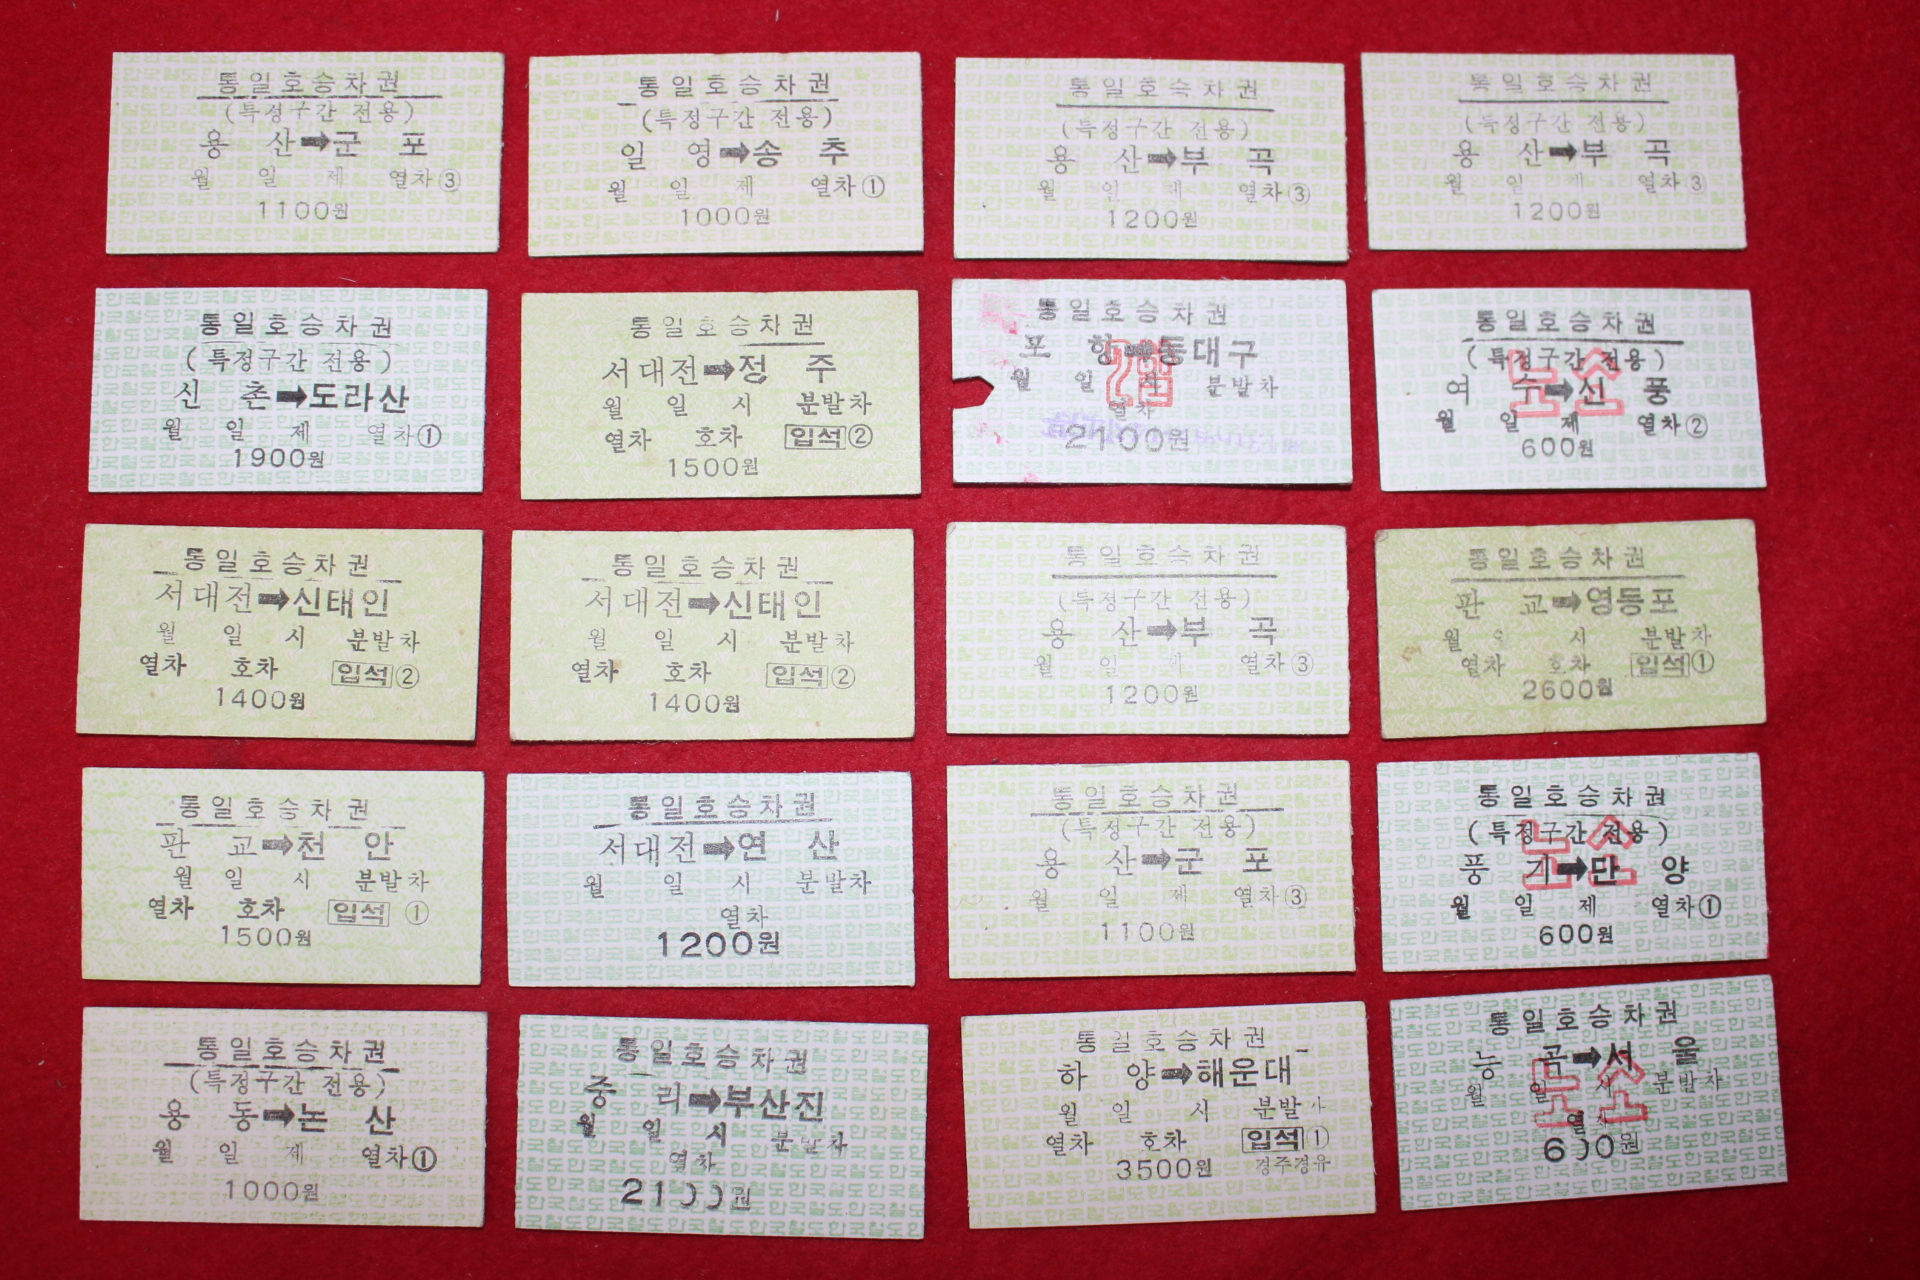 통일호승차권
(특정구간 전용)
용 산➡군 포
월 일 제 열차③
1100원
통일호승차권
(특정구간 전용)
일 영➡송 추
월 일 제 열차①
1000원
통일호승차권
(특정구간 전용)
용 산➡부 곡
월 일 제 열차③
1200원
통일호승차권
(특정구간 전용)
용 산➡부 곡
월 일 제 열차③
1200원
통일호승차권
(특정구간 전용)
신 촌➡도라산
월 일 제 열차①
1900원
통일호승차권
서대전➡정 주
월 일 시 분발차
열차 호차 입석②
1500원
통일호승차권
포 항➡동대구
월 일 시 분발차
열차
2100원
통일호승차권
(특정구간 전용)
여 수➡신 풍
월 일 제 열차②
600원
노소
통일호승차권
서대전➡신태인
월 일 시 분발차
열차 호차 입석②
1400원
통일호승차권
서대전➡신태인
월 일 시 분발차
열차 호차 입석②
1400원
통일호승차권
(특정구간 전용)
용 산➡부 곡
월 일 제 열차③
1200원
통일호승차권
판 교➡영등포
월 일 시 분발차
열차 호차 입석①
2600원
통일호승차권
판 교➡천 안
월 일 시 분발차
열차 호차 입석①
1500원
통일호승차권
서대전➡연 산
월 일 시 분발차
열차
1200원
통일호승차권
(특정구간 전용)
용 산➡군 포
월 일 제 열차③
1100원
통일호승차권
(특정구간 전용)
풍 기➡단 양
월 일 제 열차①
600원
노소
통일호승차권
(특정구간 전용)
용 동➡논 산
월 일 제 열차①
1000원
통일호승차권
중 리➡부산진
월 일 시 분발차
열차
2100원
통일호승차권
하 양➡해운대
월 일 시 분발차
열차 호차 입석①
3500원 경주경유
통일호승차권
능 곡➡서 울
월 일 시 분발차
열차
600원
노소